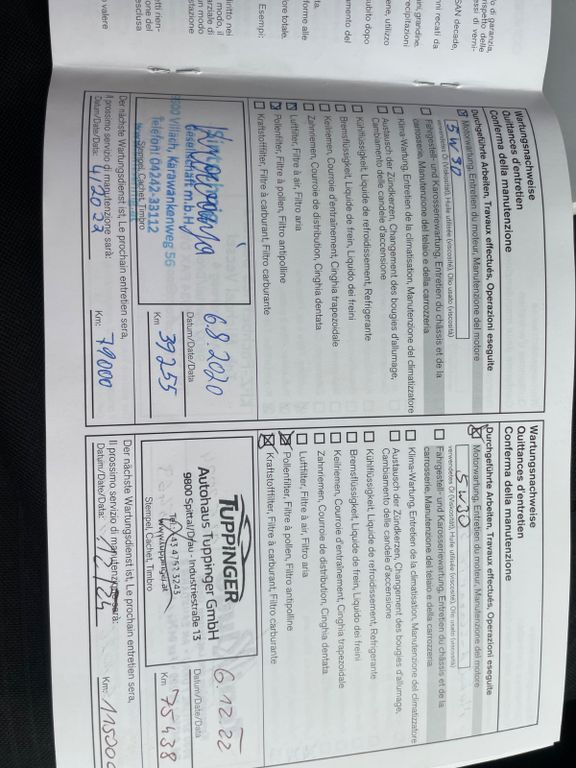 Wartungsnachweise
Quittances d'entretien
Conferma della manutenzione
Durchgeführte Arbeiten, Travaux effectués, Operazioni eseguite
Motorwartung, Entretien du moteur, Manutenzione del motore
verwendetes Öl (Viskosität), Huile utilisée (viscosité), Olio usato (viscosità)
5W30
Fahrgestell- und Karosseriewartung, Entretien du châssis et de la
carrosserie, Manutenzione del telaio e della carrozzeria
Klima-Wartung, Entretien de la climatisation, Manutenzione del climatizzatore
Austausch der Zündkerzen, Changement des bougies d'allumage,
Cambiamento delle candele d'accensione
Kühlflüssigkeit, Liquide de refroidissement, Refrigerante
Bremsflüssigkeit, Liquide de frein, Liquido dei freini
Keilriemen, Courroie d'entraînement, Cinghia trapezoidale
Zahnriemen, Courroie de distribution, Cinghia dentata
Luftfilter, Filtre à air, Filtro aria
Pollenfilter, Filtre à pollen, Filtro antipolline
Kraftstofffilter, Filtre à carburant, Filtro carburante
Gesellschaft m.b.H.
9500 Villach, Karawankenweg 56
Telefon: 04242-33112
Stempel, Cachet, Timbro
Datum/Date/Data
6.8.2020
Km
39255
Der nächste Wartungsdienst ist, Le prochain entretien sera,
Il prossimo servizio di manutenzione sarà:
Datum/Date/Data: 4/2022
Km: 79000
Wartungsnachweise
Quittances d'entretien
Conferma della manutenzione
Durchgeführte Arbeiten, Travaux effectués, Operazioni eseguite
Motorwartung, Entretien du moteur, Manutenzione del motore
verwendetes Öl (Viskosität), Huile utilisée (viscosité), Olio usato (viscosità)
5W30
Fahrgestell- und Karosseriewartung, Entretien du châssis et de la
carrosserie, Manutenzione del telaio e della carrozzeria
Klima-Wartung, Entretien de la climatisation, Manutenzione del climatizzatore
Austausch der Zündkerzen, Changement des bougies d'allumage,
Cambiamento delle candele d'accensione
Kühlflüssigkeit, Liquide de refroidissement, Refrigerante
Bremsflüssigkeit, Liquide de frein, Liquido dei freini
Keilriemen, Courroie d'entraînement, Cinghia trapezoidale
Zahnriemen, Courroie de distribution, Cinghia dentata
Luftfilter, Filtre à air, Filtro aria
Pollenfilter, Filtre à pollen, Filtro antipolline
Kraftstofffilter, Filtre à carburant, Filtro carburante
TUPPINGER
Autohaus Tuppinger GmbH
9800 Spittal/Drau · Industriestraße 13
www.tuppinger.at
Stempel, Cachet, Timbro
Datum/Date/Data
6.12.22
Km 75438
Der nächste Wartungsdienst ist, Le prochain entretien sera,
Il prossimo servizio di manutenzione sarà:
Datum/Date/Data: 12/24
Km: 115000